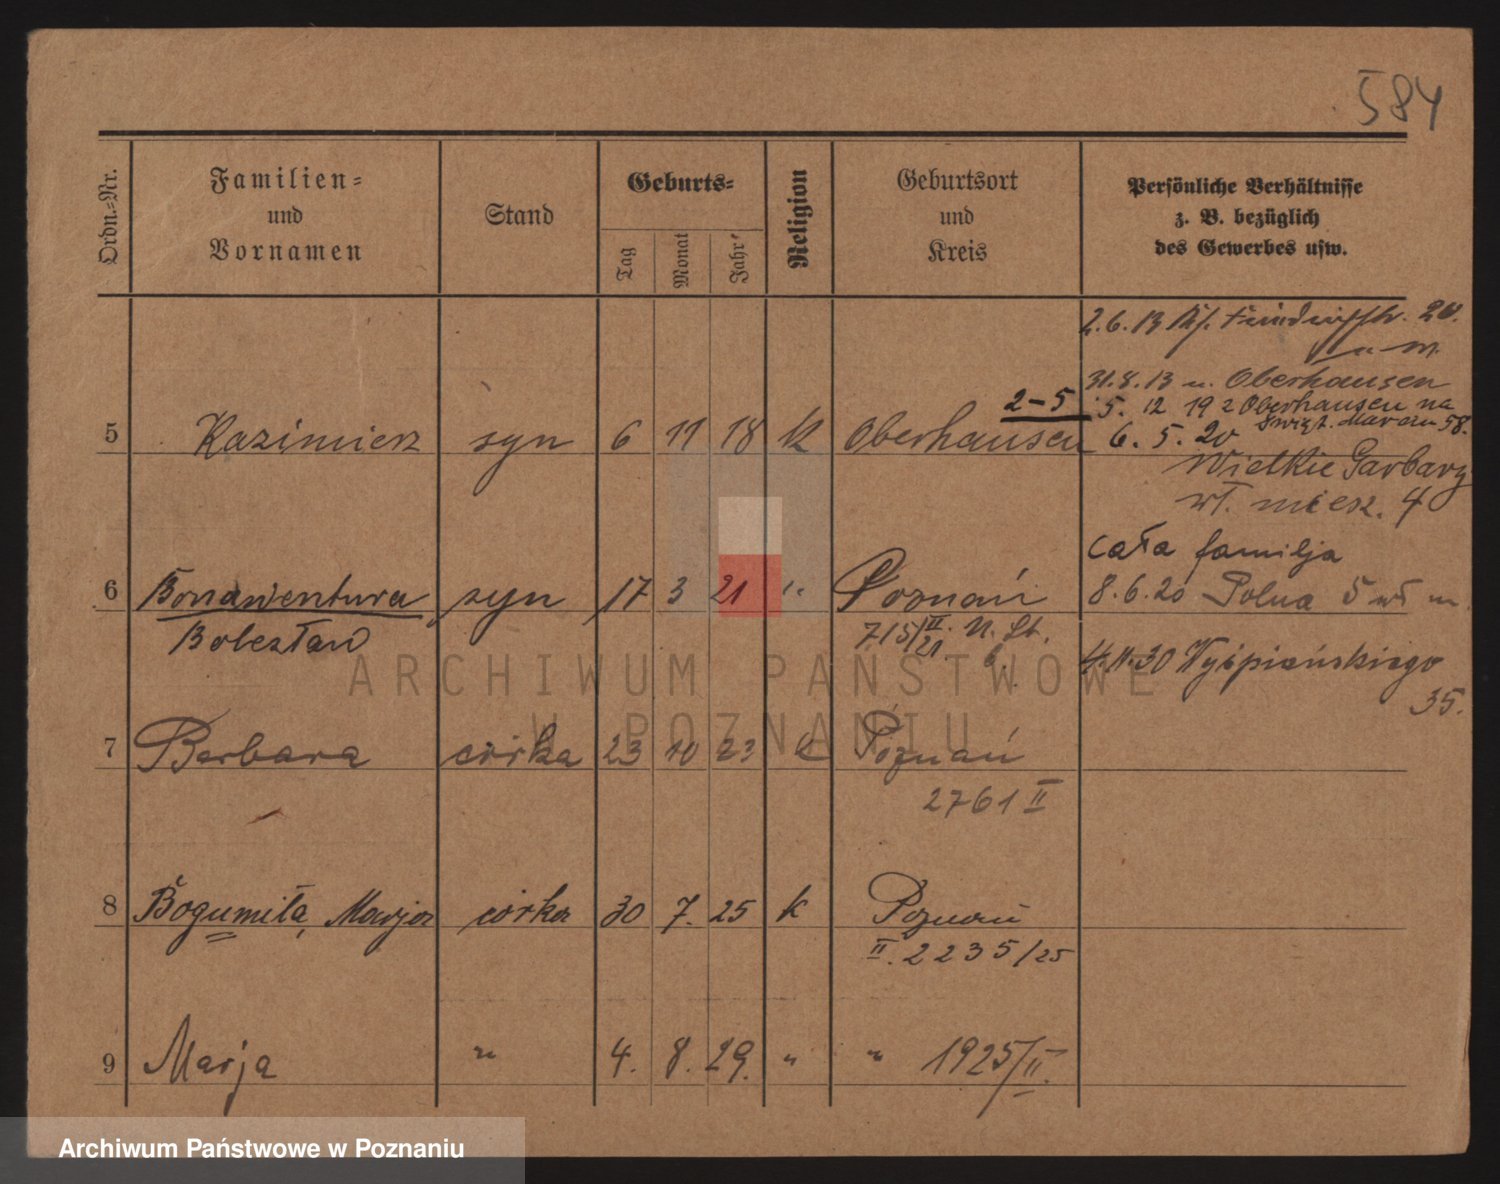 584
Ordn.-Nr.
Familien-
und
Vornamen
Stand
Geburts-
Tag
Monat
Jahr
Religion
Geburtsort
und
Kreis
Persönliche Verhältnisse
z. B. bezüglich
des Gewerbes usw.
2.6.13 20.
31.8.13 n. Oberhausen
2-5 5. 12 19 z Oberhausen na
Święt. Marcin 58.
5 Kazimierz syn 6 11 18 K Oberhausen 6. 5. 20
Wielkie Garbary
wł. miesz. 4
cała familja
6 Bonawentura syn 17 3 21 " Poznań 8.6.20 Polna 5 wł m
Bolesław 715/II 21
4.11.30 Wyśpiańskiego
35.
ARCHIWUM PAŃSTWOWE
W POZNANIU
7 Barbara córka 23 10 23 K Poznań
2761 II
8 Bogumiła, Marja córka 30 7. 25 K Poznań
II. 2235/25
9 Marja " 4. 8. 29. " " 1925/II.
Archiwum Państwowe w Poznaniu